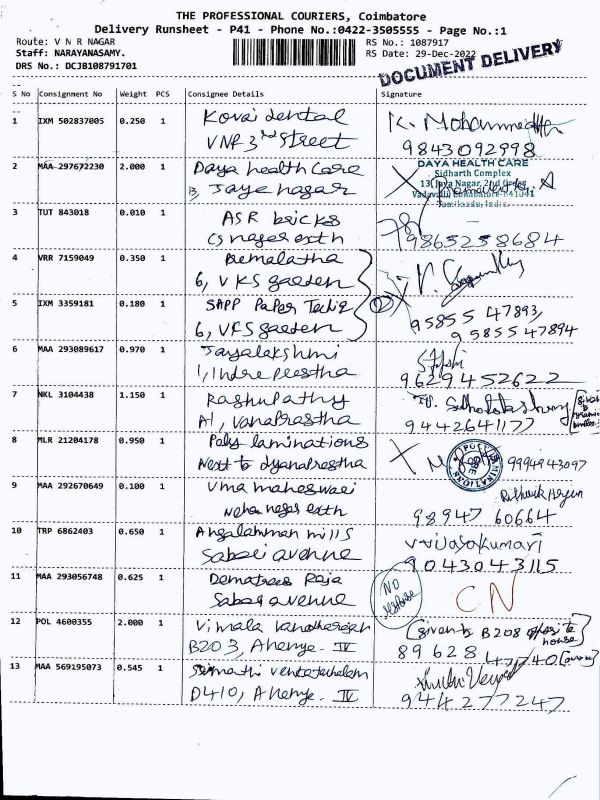 THE PROFESSIONAL COURIERS, Coimbatore
Delivery Runsheet - P41 - Phone No.:0422-3505555 - Page No.:1
Route: V N R NAGAR
Staff: NARAYANASAMY.
DRS No.: DCJB108791701
RS No.: 1087917
RS Date: 29-Dec-2022
DOCUMENT DELIVERY
S No Consignment No Weight PCS Consignee Details Signature
1 IXM 502837005 0.250 1 Kovai dental K. Mohammed
VNR 3rd Street 9843092998
2 MAA 297672230 2.000 1 Daya health Care DAYA HEALTH CARE
13, Jaya nagar Sidharth Complex
13, Jaya Nagar, 2nd Cross
Vadavalli Coimbatore-641041
Tamilnadu, India
3 TUT 843018 0.010 1 ASR bricks
CS nagar exth 9865258684
4 VRR 7159049 0.350 1 Premalatha
6, VKS garden
5 IXM 3359181 0.180 1 SAPP Paper 95855 47893,
6, VKS garden 95855 47894
6 MAA 293089617 0.970 1 Jayalakshmi
1, Indra prestha 9629452622
7 NKL 3104438 1.150 1 Raghupathy
A1, Vanaprastha 9442641177
8 MLR 21204178 0.950 1 Poly laminations POLY LAMINATIONS 9994943097
Next to dyanaprastha
9 MAA 292670649 0.100 1 Uma maheswari
nehru nagar exth 98947 60664
10 TRP 6862403 0.650 1 Angalamman mills V. Vijayakumari
Sabari avenue 9043043115
11 MAA 293056748 0.625 1 Raja NO response CN
Sabari avenue
12 POL 4600355 2.000 1 Vimala (given to B208 opposite house)
B203, Ahenya - IV 89628 47740
13 MAA 569195073 0.545 1 Sumathi venkatachalam
D410, Ahenya - IV 944277247